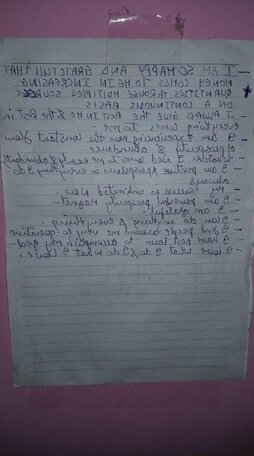 I AM SO HAPPY AND GRATEFULL THAT
MONEY COMES TO ME IN INCREASING
QUANTITIES THROUGH MULTIPLES SOURCES
ON A CONTINUOUS BASIS
I ALWAYS GIVE THE BEST IN ME & the Best in
everything comes to me.
I am experiencing now the constant flow
of prosperity & abundance
whatever I need comes to me easily & abundantly
I am positive & prosperous in everything I do
always
my success is unlimited now
I am powerful prosperity magnet.
I am grateful.
I can do anything & everything.
I find people around me very co-operative
I have best team to accomplish my goal
I love what I do & I do what I love.